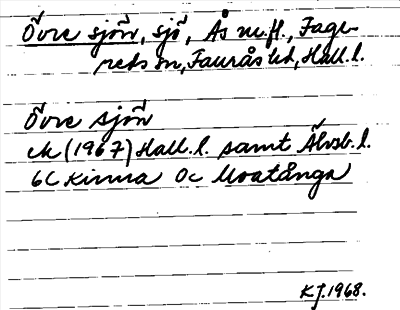 Övre sjön, sjö, Ås m.fl., Fage-
reds sn, Faurås hd, Hall.l.
Övre sjön
ek (1967) Hall.l. samt Älvsb.l.
6C Kinna 0c Moatånga
KJ.1968.